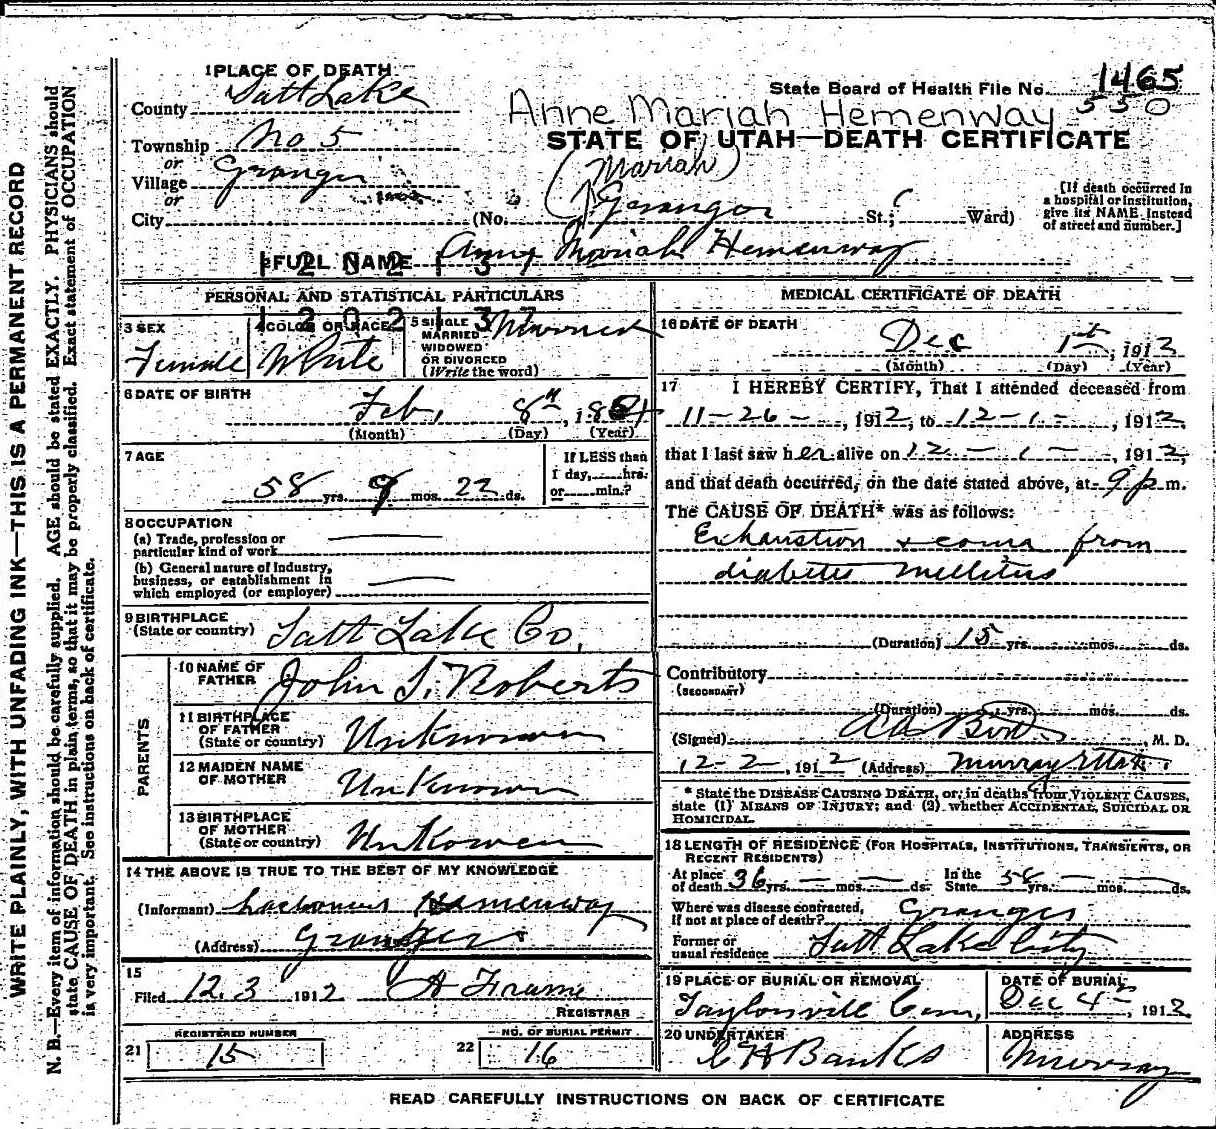 WRITE PLAINLY, WITH UNFADING INK—THIS IS A PERMANENT RECORD
N. B.—Every item of information should be carefully supplied. AGE should be stated EXACTLY. PHYSICIANS should
state CAUSE OF DEATH in plain terms, so that it may be properly classified. Exact statement of OCCUPATION
is very important. See instructions on back of certificate.
1 PLACE OF DEATH
County Salt Lake
Township No 5
or
Village Granger
or
City (No. Granger St.; Ward)
State Board of Health File No. 1465
550
Anne Mariah Hemenway
STATE OF UTAH—DEATH CERTIFICATE
(Mariah)
[If death occurred in
a hospital or institution,
give its NAME instead
of street and number.]
FULL NAME Anny Mariah Hemenway
PERSONAL AND STATISTICAL PARTICULARS
3 SEX
Female
4 COLOR OR RACE
White
5 SINGLE
MARRIED
WIDOWED
OR DIVORCED
(Write the word)
Married
6 DATE OF BIRTH
Feb, 8th, 1854
(Month) (Day) (Year)
7 AGE
58 yrs. 9 mos. 22 ds.
If LESS than
1 day, hrs.
or min.?
8 OCCUPATION
(a) Trade, profession or
particular kind of work
(b) General nature of industry,
business, or establishment in
which employed (or employer)
9 BIRTHPLACE
(State or country) Salt Lake Co,
PARENTS
10 NAME OF
FATHER John S. Roberts
11 BIRTHPLACE
OF FATHER
(State or country) Unknown
12 MAIDEN NAME
OF MOTHER Unknown
13 BIRTHPLACE
OF MOTHER
(State or country) Unkowen
14 THE ABOVE IS TRUE TO THE BEST OF MY KNOWLEDGE
(Informant) Hemenway
(Address) Granger
15
Filed 12.3 1912 A Frame
REGISTRAR
REGISTERED NUMBER
21 15
NO. OF BURIAL PERMIT
22 16
MEDICAL CERTIFICATE OF DEATH
16 DATE OF DEATH
Dec 1st, 1912
(Month) (Day) (Year)
17 I HEREBY CERTIFY, That I attended deceased from
11-26-, 1912, to 12-1-, 1912,
that I last saw her alive on 12-1-, 1912,
and that death occurred, on the date stated above, at 9 p. m.
The CAUSE OF DEATH* was as follows:
Exhaustion & coma from
diabetes mellitus
(Duration) 15 yrs. mos. ds.
Contributory
(SECONDARY)
(Duration) yrs. mos. ds.
(Signed) M. D.
12-2, 1912 (Address) Murray Utah
* State the DISEASE CAUSING DEATH, or, in deaths from VIOLENT CAUSES,
state (1) MEANS OF INJURY; and (2) whether ACCIDENTAL, SUICIDAL OR
HOMICIDAL.
18 LENGTH OF RESIDENCE (FOR HOSPITALS, INSTITUTIONS, TRANSIENTS, OR
RECENT RESIDENTS)
At place
of death 36 yrs. mos. ds.
In the
State 58 yrs. mos. ds.
Where was disease contracted,
if not at place of death? Granger
Former or
usual residence Salt Lake City
19 PLACE OF BURIAL OR REMOVAL
Taylorsville Cem,
DATE OF BURIAL
Dec 4th, 1912
20 UNDERTAKER
C H Banks
ADDRESS
Murray
READ CAREFULLY INSTRUCTIONS ON BACK OF CERTIFICATE